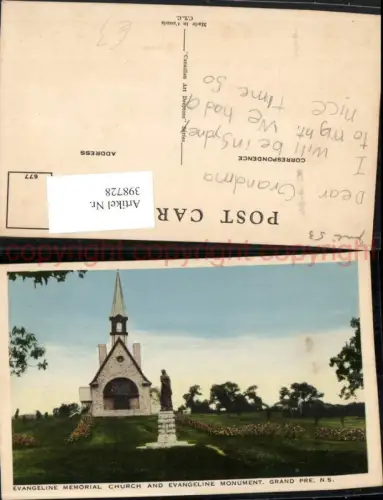 POST CARD
CORRESPONDENCE
ADDRESS
677
Canadian Art
Made in Canada
C.S.C.
June 53
Dear Grandma
I will be in Sydney
to night. We had a
nice time. So
£3
Artikel Nr.
398728
EVANGELINE MEMORIAL CHURCH AND EVANGELINE MONUMENT, GRAND PRE, N.S.